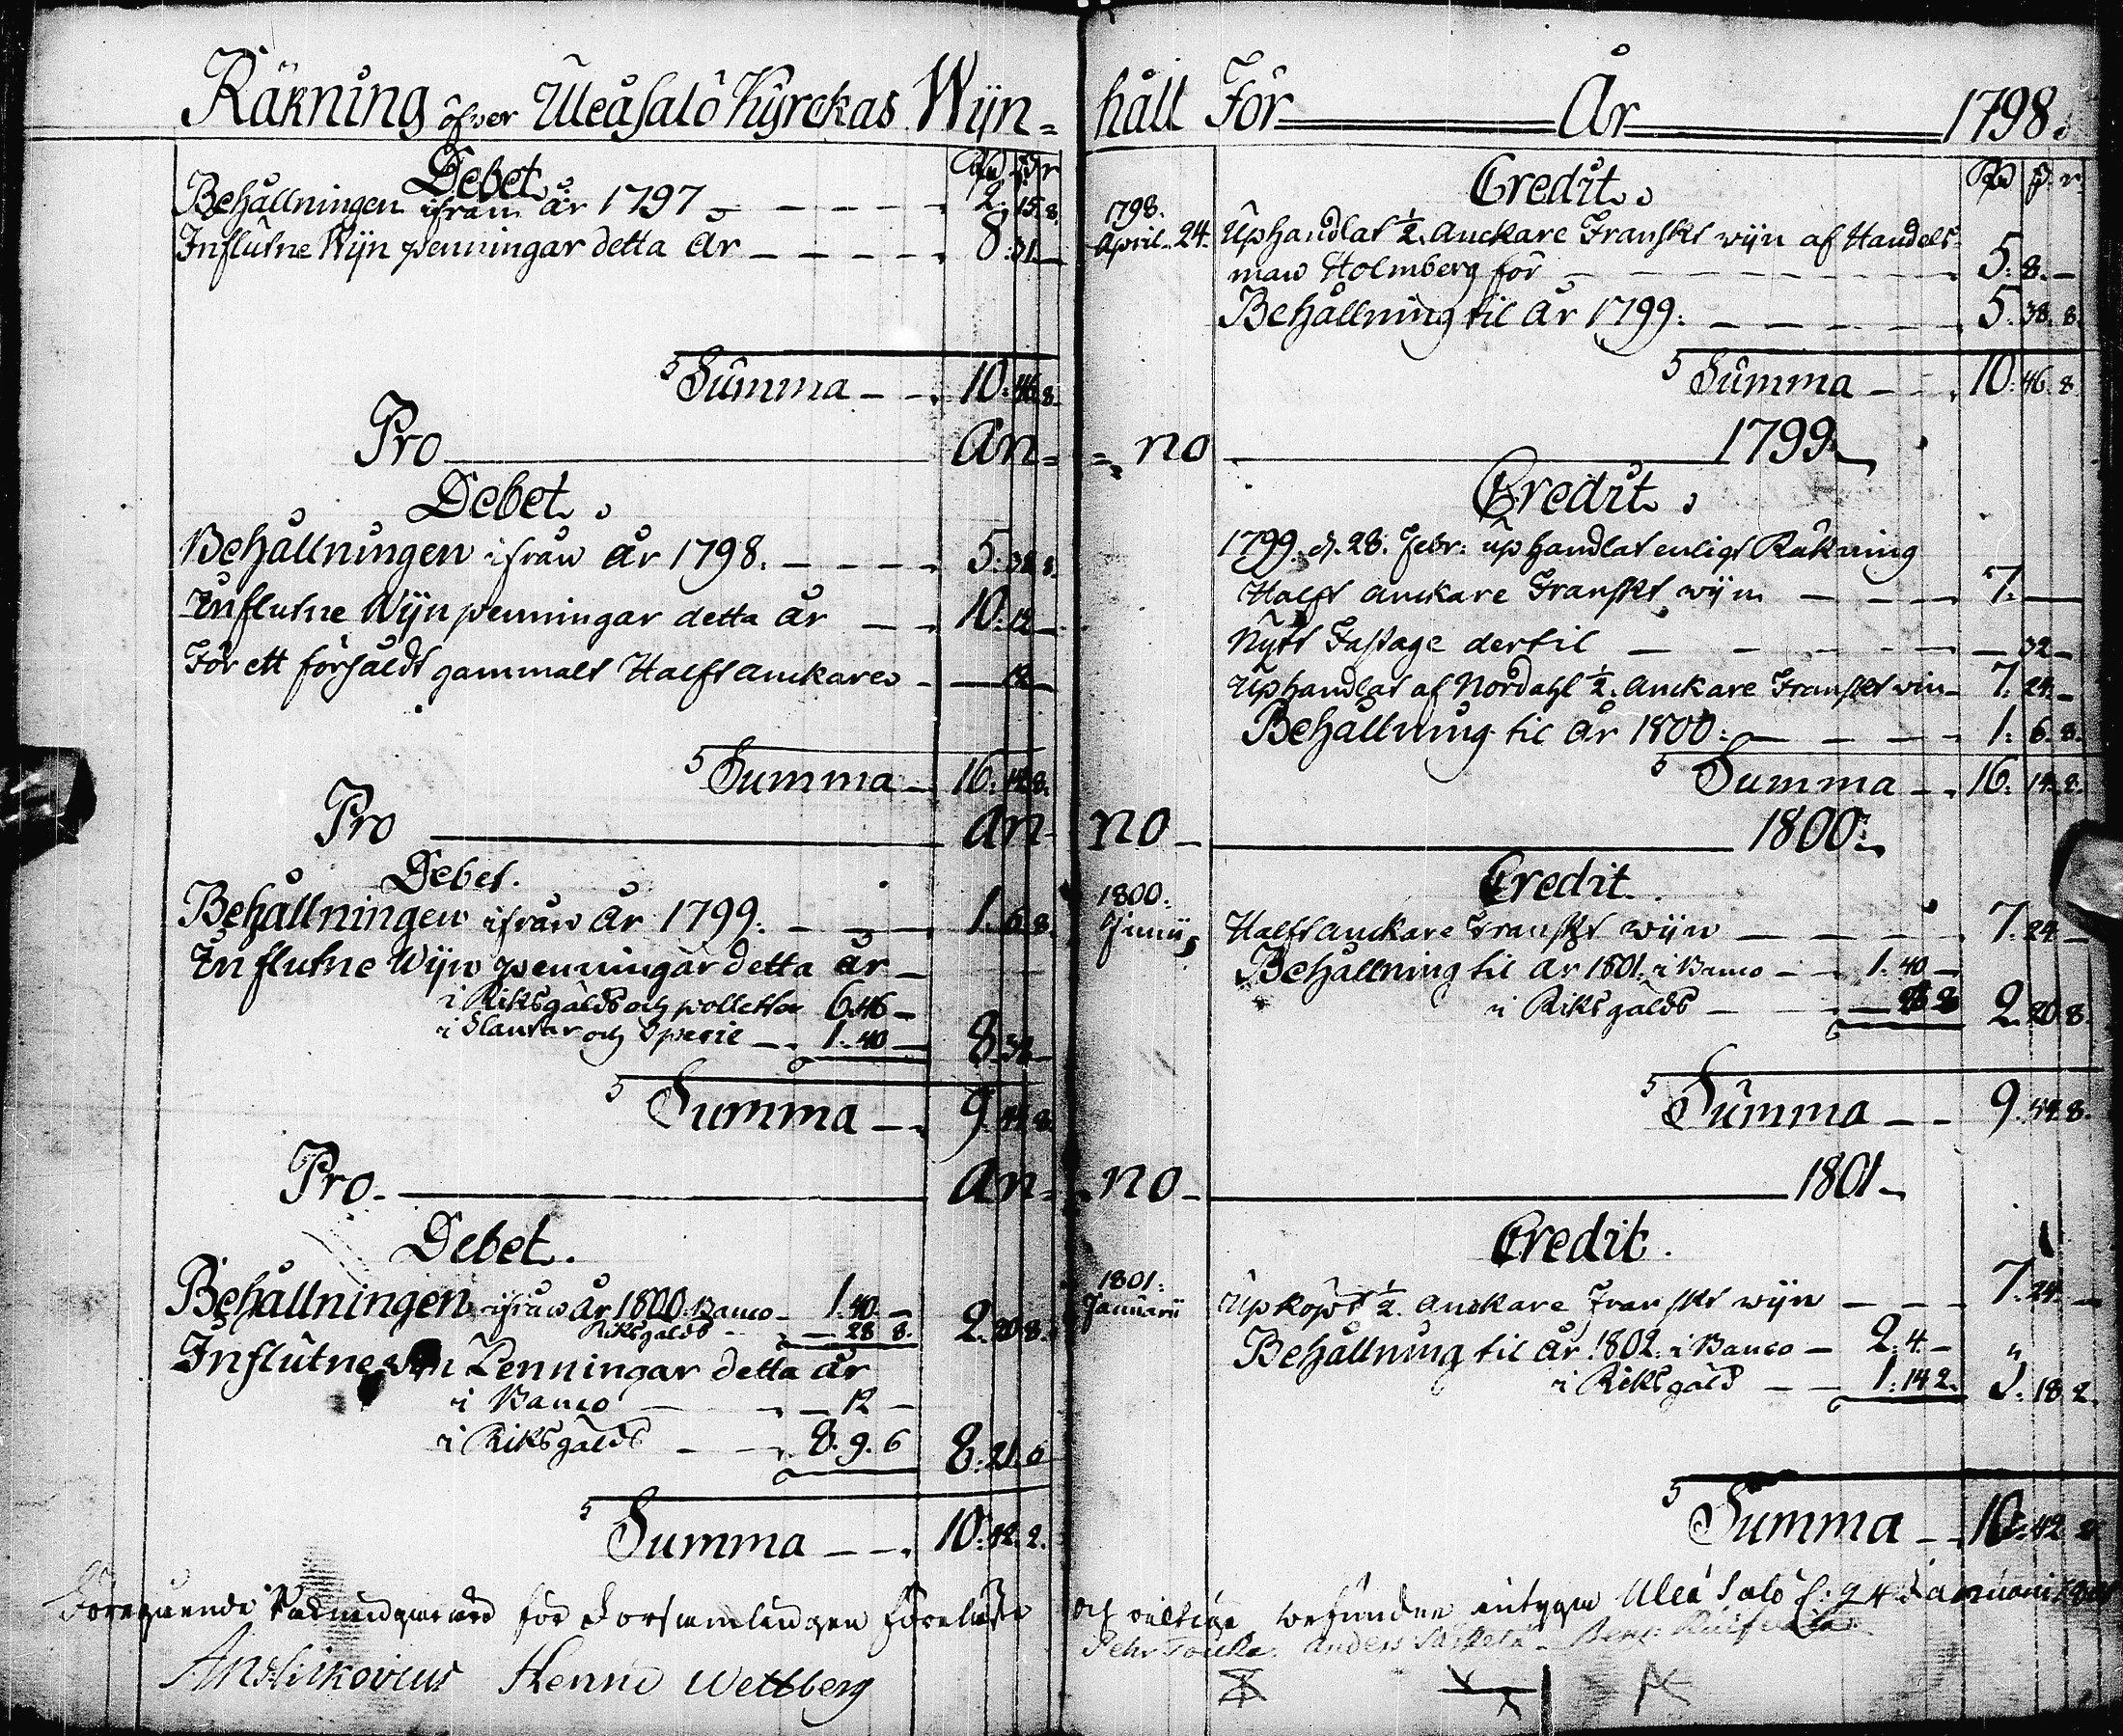 Räkning öfver Uleåsalo Kyrckas Wijn=
Debet.
Rd ß r
Behållningen ifrån år 1797 2. 15. 8.
Influtne Wijn penningar detta år 8. 31.
Summa 10. 46. 8.
Pro An=
Debet.
Behållningen ifrån år 1798. 5. 38. 8.
Influtne Wijn penningar detta år 10. 12
För ett försåldt gammalt Halft anckare 12
Summa 16. 14. 8.
Pro An-
Debet.
Behållningen ifrån år 1799. 1. 6. 8.
Influtne Wijn penningar detta år
i Riksgälds och polletter 6. 46
i Slantar och Specie 1. 40 8. 38
Summa 9. 44. 8.
Pro An-
Debet.
Behållningen ifrån år 1800. Banco 1. 40.
Riksgälds 28 8. 2. 20. 8.
Influtne Penningar detta år
i Banco 12
i Riksgälds 8. 9. 6 8. 21. 6
Summa 10. 42. 2.
Föregående för Församlingen
Henric Wettberg
håll För År 1798.
Credit.
Rd ß r
1798.
April. 24. Uphandlat ½ Anckare Franskt wijn af Handels-
man Holmberg för 5. 8.
Behållning til år 1799. 5. 38. 8.
Summa 10. 46. 8.
no 1799.
Credit.
1799. d. 28. Febr: uphandlat enligt Räkning
Halft anckare Franskt wijn 7.
Nytt Fastage dertil 32
Uphandlat af Nordahl ½ Anckare Franskt vin 7. 24.
Behållning til år 1800. 1. 6. 8.
Summa 16. 14. 8.
no 1800.
Credit
1800.
Junii Halft anckare Franskt wijn 7. 24
Behållning til år 1801. i Banco 1. 40
i Riksgälds 28 8 2. 20. 8.
Summa 9. 44. 8.
no 1801
Credit.
1801.
Januarii Upköpt ½ Anckare Franskt wijn 7. 24.
Behållning til år 1802. i Banco 2. 4.
i Riksgäld 1. 14 2. 3. 18. 2.
Summa 10. 42. 2
och befunden intygar Uleå Salo d: 24 Januarii
Anders